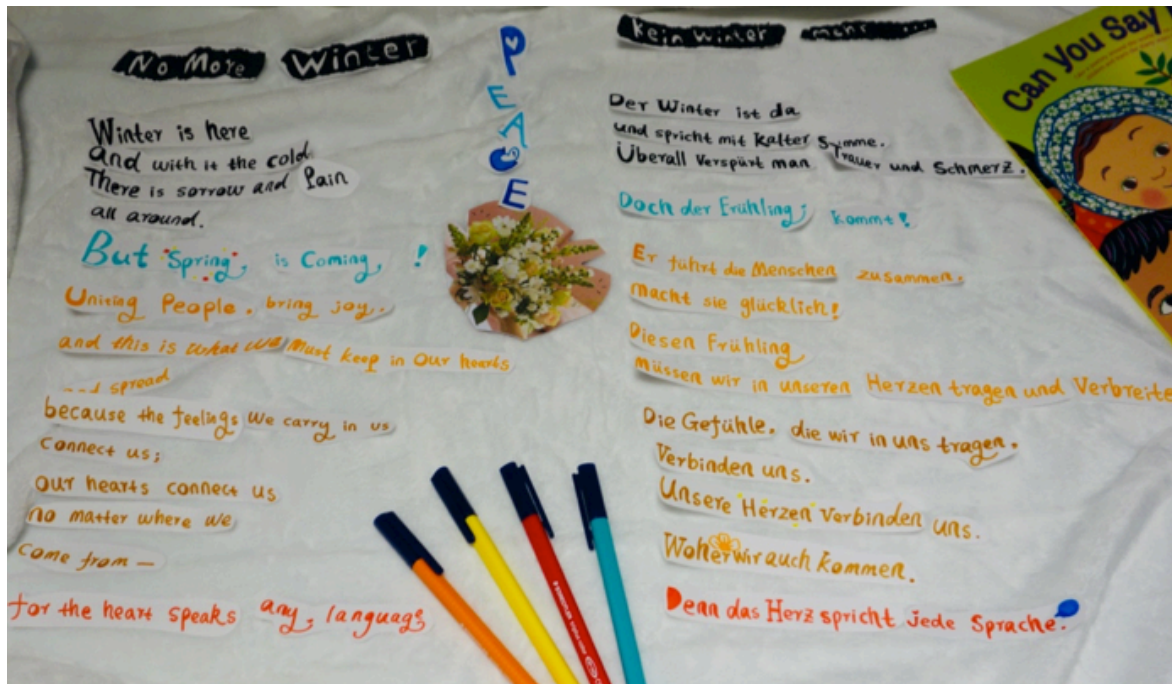 No More Winter
Winter is here
and with it the cold
There is sorrow and Pain
all around.
But Spring is Coming !
Uniting People, bring joy,
and this is what we must keep in our hearts
and spread
because the feelings we carry in us
connect us;
our hearts connect us
no matter where we
come from —
for the heart speaks any language
PEACE
Kein Winter mehr ...
Der Winter ist da
und spricht mit kalter Symme.
Überall verspürt man Trauer und Schmerz.
Doch der Frühling kommt!
Er führt die Menschen zusammen,
macht sie glücklich!
Diesen Frühling
müssen wir in unseren Herzen tragen und Verbreite
Die Gefühle, die wir in uns tragen,
Verbinden uns.
Unsere Herzen verbinden uns.
Woher wir auch kommen.
Denn das Herz spricht jede Sprache.
Can You Say